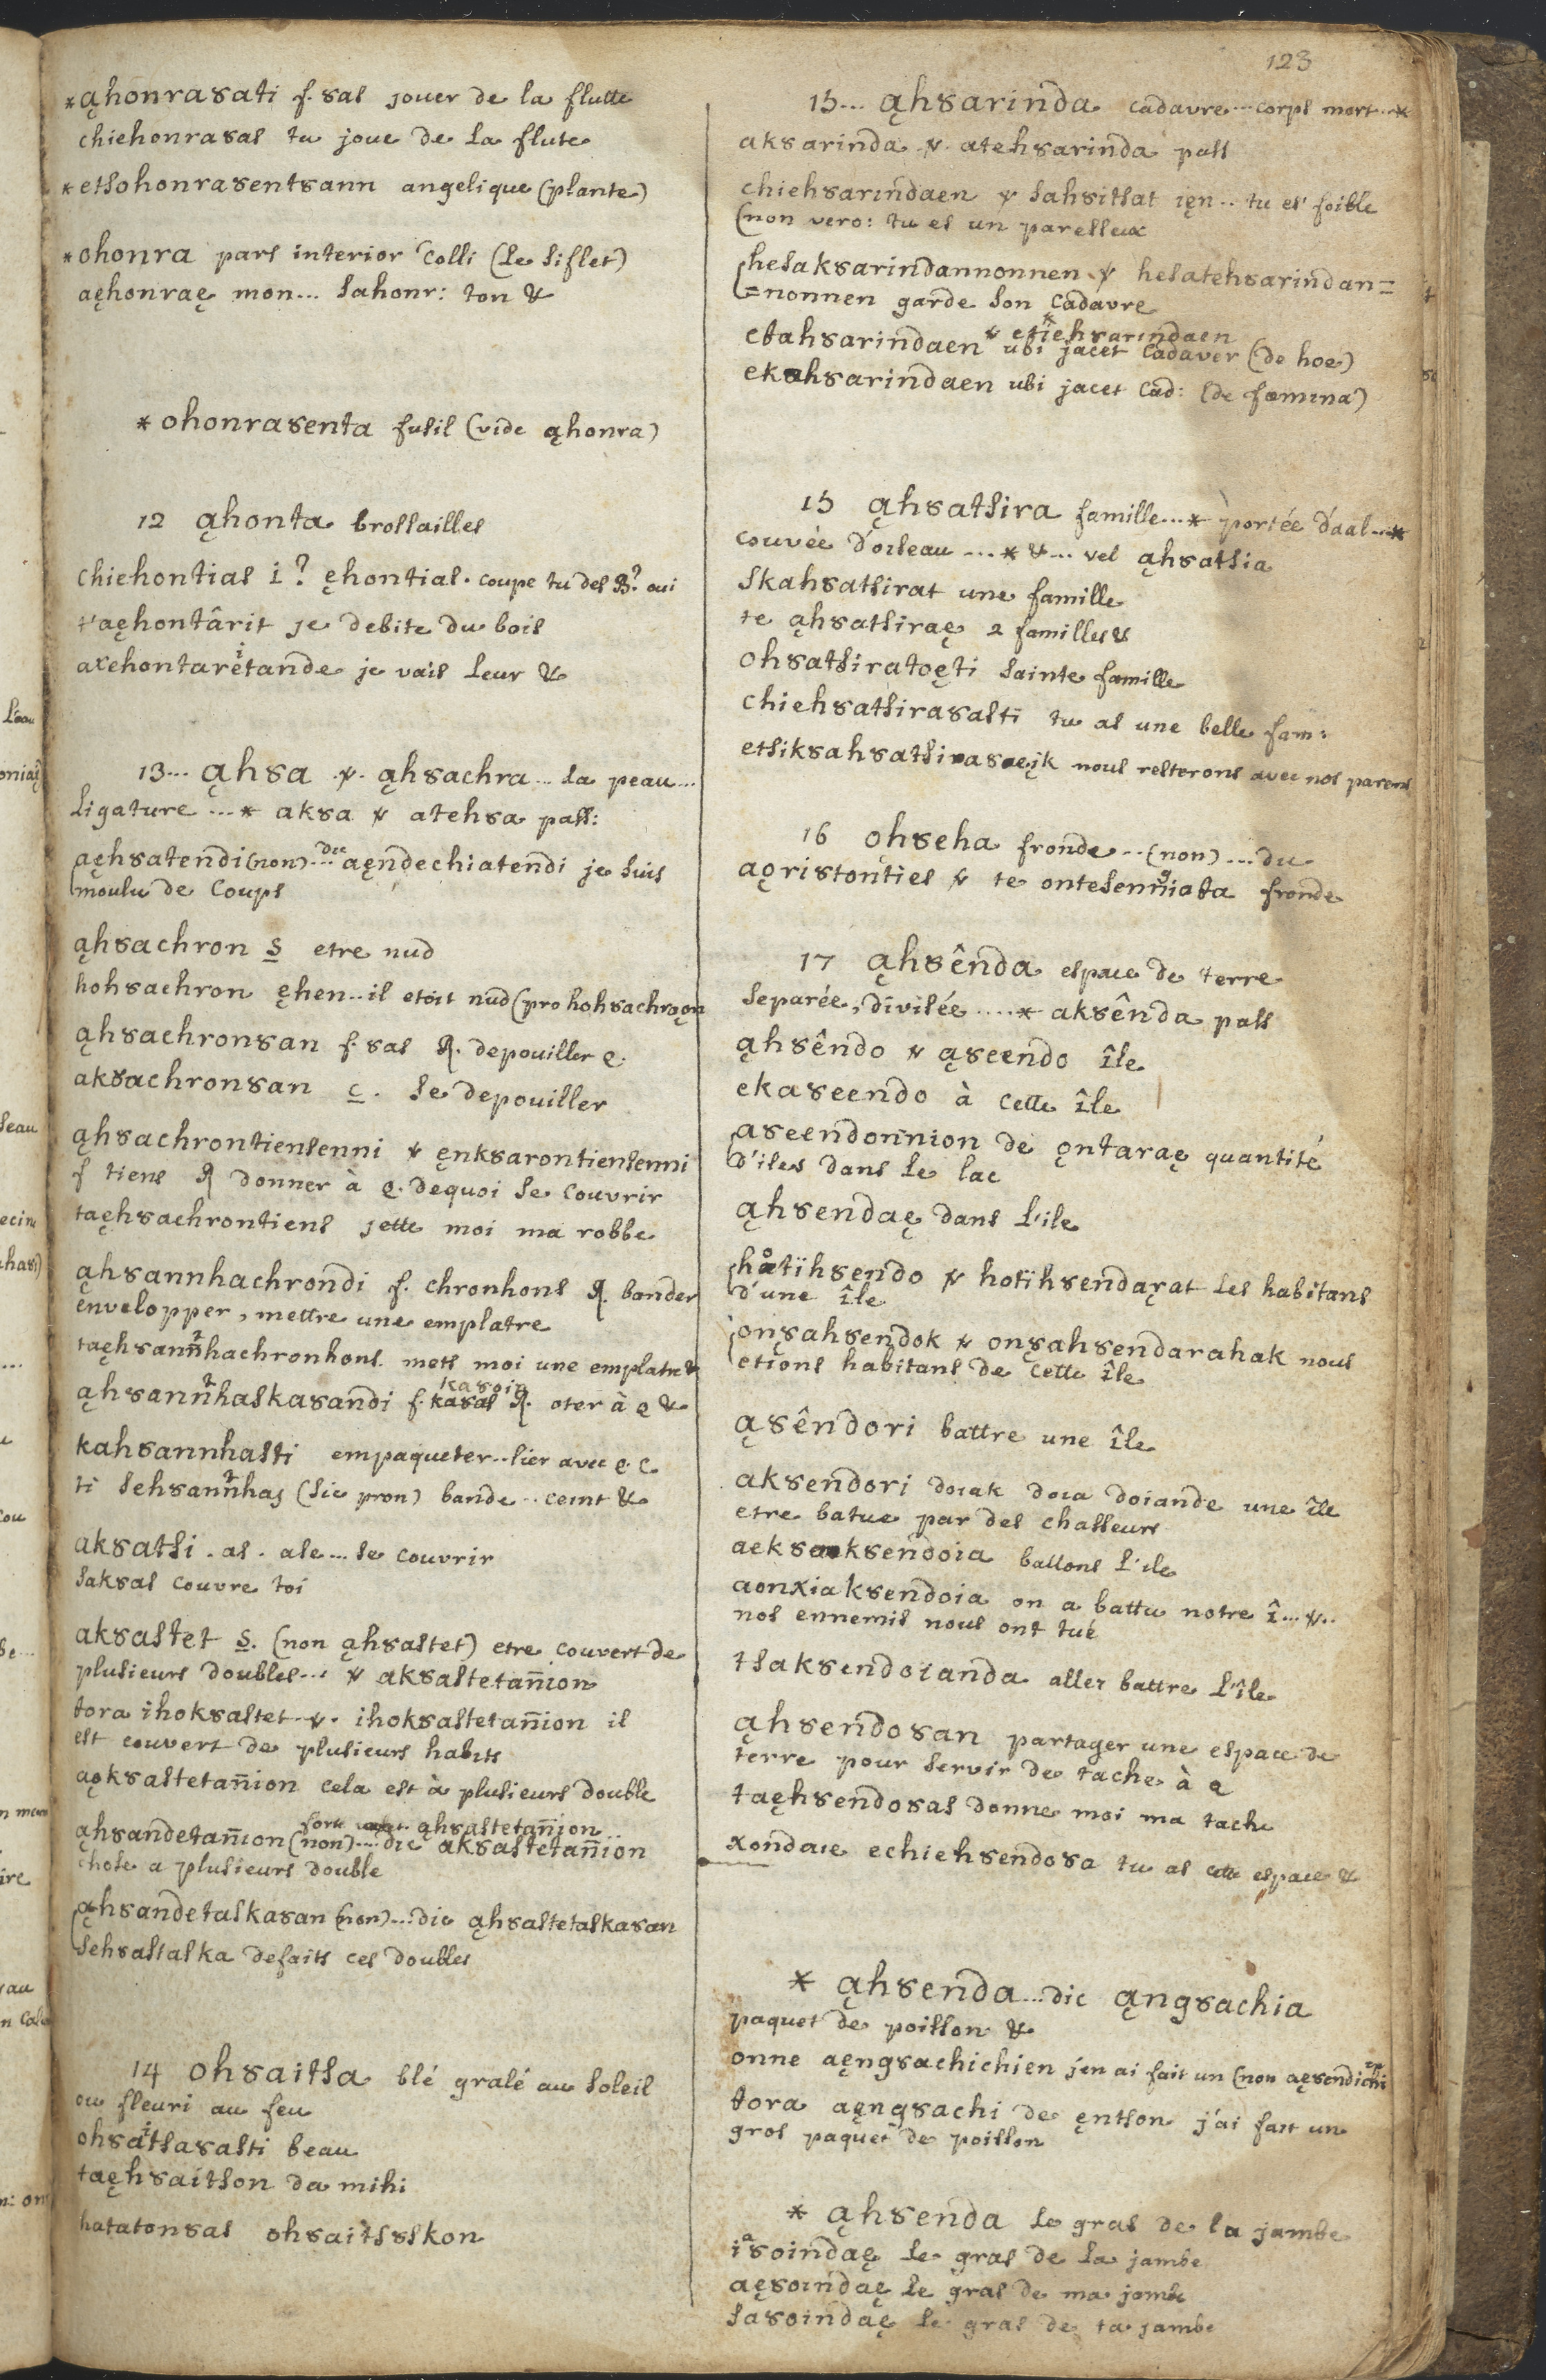 123
*ąhonra8ati f. 8as jouer de la flutte
chiehonra8as tu joue de la flute
*etsohonra8entsann angelique (plante)
*ohonra pars interior colli (le siflet)
aęhonraę mon... sahonr: ton &
*ohonra8enta fusil (vide ąhonra)
12 ąhonta brossailles
chiehontias i? ęhontias. coupe tu des B? oui
t'aęhontârit je debite du bois
axehontarëtande je vais leur &
13... ąh8a .v. ąh8achra... la peau...
ligature ...* ak8a v ateh8a pass:
aęh8atendi (non)... dic aęndechiatendi je suis
moulu de coups
ąh8achron S etre nud
hoh8achron ęhen.. il etoit nud (pro hoh8achroon
ąh8achron8an f 8as R. depouiller q.
ak8achron8an c. se depouiller
ąh8achrontiensenni v ęnk8arontiensenni
f tiens R donner à q. dequoi se couvrir
taęh8achrontiens jette moi ma robbe
ąh8annhachrondi f. chronhons R. bander
envelopper, mettre une emplatre
taęh8annhachronhons. mets moi une emplatre &
ka8oin
ąh8annhaska8andi f. ka8as R. oter à q &
kah8annhasti empaqueter.. lier avec q. c.
ti seh8annhaş (sic pron) bande.. ceint &
ak8atsi . as . ase... se couvrir
sak8as couvre toi
ak8astet S. (non ąh8astet) etre couvert de
plusieurs doubles... v ak8astetañion
tora ihok8astet .v. ihok8astetañion il
est couvert de plusieurs habits
aok8astetañion cela est à plusieurs double
ąh8astetañion
ąh8andetañion (non)... dic ak8astetañion
chose a plusieurs double
ąh8andetaska8an (non)... dic ąh8astetaska8an
seh8astaska defaits ces doubles
14 oh8aitsa blé gralé au soleil
ou fleuri au feu
oh8aitsa8asti beau
taęh8aitson da mihi
hataton8as oh8aits8kon
15... ąh8arinda cadavre... corps mort..*
ak8arinda v. ateh8arinda pass
chieh8arindaen v sah8itsat ięn.. tu es foible
(non vero: tu es un paresseux
hesak8arindannonnen v hesateh8arindan=
=nonnen garde son cadavre
v etieh8arindaen
etah8arindaen ubi jacet cadaver (de hoe)
ekah8arindaen ubi jacet cad: (de fœmina)
15 ąh8atsira famille...* portée d'aal...*
couvée d'oiseau ...* &... vel ąh8atsia
skah8atsirat une famille
te ąh8atsiraę 2 familles &
oh8atsiratoęti sainte famille
chieh8atsira8asti tu as une belle fam:
etsik8ah8atsira8eįk nous resterons avec nos parens
16 oh8eha fronde... (non)... du
aoristonties v te ontesenniata fronde
17 ąh8ênda espace de terre
separée, divisée ....* ak8ênda pass
ąh8êndo v ą8eendo île
eka8eendo à cette île
a8eendonnion de ǫntaraę quantité
d'iles dans le lac
ąh8endaę dans l'ile
hotïh8endo v hotïh8endaŗat les habitans
d'une île
on8ah8endok v on8ah8endarahak nous
etions habitans de cette île
ą8êndori battre une île
ak8endori doiak doia doiande une île
etre batue par des chasseurs
aek8ak8endoia battons l'ile
aonxiak8endoia on a battu notre î... v..
nos ennemis nous ont tué
tsak8endoianda aller battre l'île
ąh8endo8an partager une espace de
terre pour servir de tache à q
taęh8endo8as donne moi ma tache
xondaie echieh8endo8a tu as cette espace &
* ąh8enda... dic ąng8achia
paquet de poisson &
onne aęng8achichien j'en ai fait un (non aę8endichi
tora aęng8achi de ęntson j'ai fait un
gros paquet de poisson
* ąh8enda le gras de la jambe
ia8oindaę le gras de la jambe
aę8oindaę le gras de ma jambe
sa8oindaę le gras de ta jambe